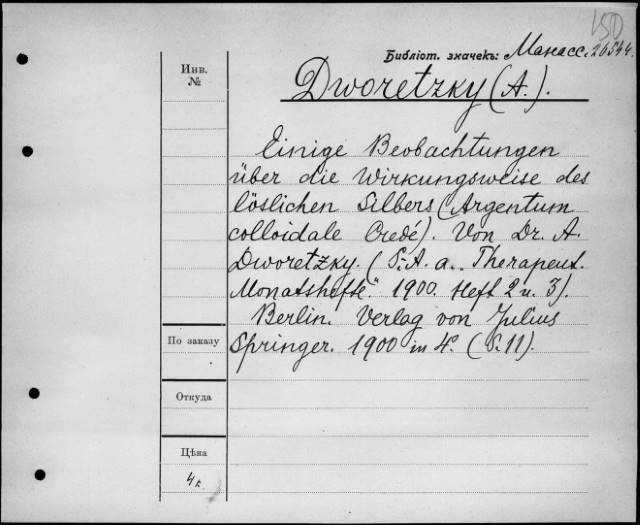 150
Библіот. значекъ: Манасс. 26544.
Инв.
№
Dworetzky (A.).
Einige Beobachtungen
über die Wirkungsweise des
löslichen Silbers (Argentum
colloidale Credé). Von Dr. A.
Dworetzky. (S.-A. a. „Therapeut.
Monatshefte." 1900. Heft 2 u. 3).
Berlin. Verlag von Julius
Springer. 1900 in 4°. (S. 11).
По заказу
Откуда
Цѣна
4 к.